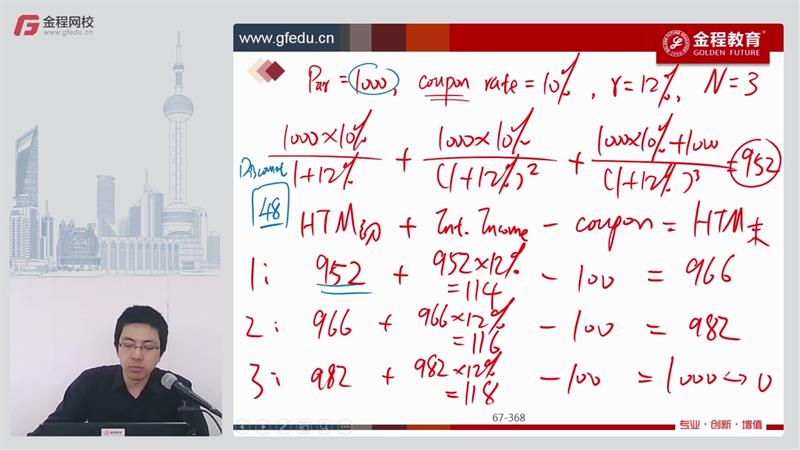 金程网校
www.gfedu.cn
www.gfedu.cn
金程教育
GOLDEN FUTURE
Par = 1000, coupon rate = 10%, r = 12%, N = 3
1000×10% / 1+12% + 1000×10% / (1+12%)² + 1000×10%+1000 / (1+12%)³ = 952
Discount
48
HTM初 + Int. Income - coupon = HTM末
1: 952 + 952×12% =114 - 100 = 966
2: 966 + 966×12% =116 - 100 = 982
3: 982 + 982×12% =118 - 100 = 1000 ↔ 0
67-368
专业·创新·增值